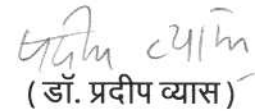 प्रदीप व्यास
( डॉ. प्रदीप व्यास )